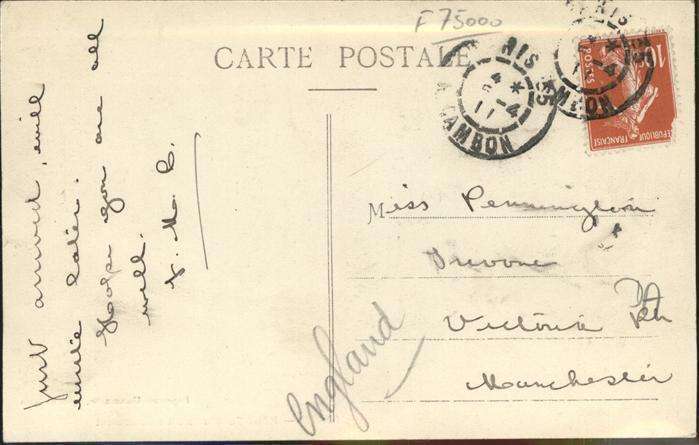 F75000
CARTE POSTALE
PARIS 25
4 *
-4
11
R. CAMBON
10
POSTES
RÉPUBLIQUE FRANÇAISE
Just arrived, will
write later.
Hope you are all
well.
Miss Pennington
Trevone
Victoria Pk
Manchester
England